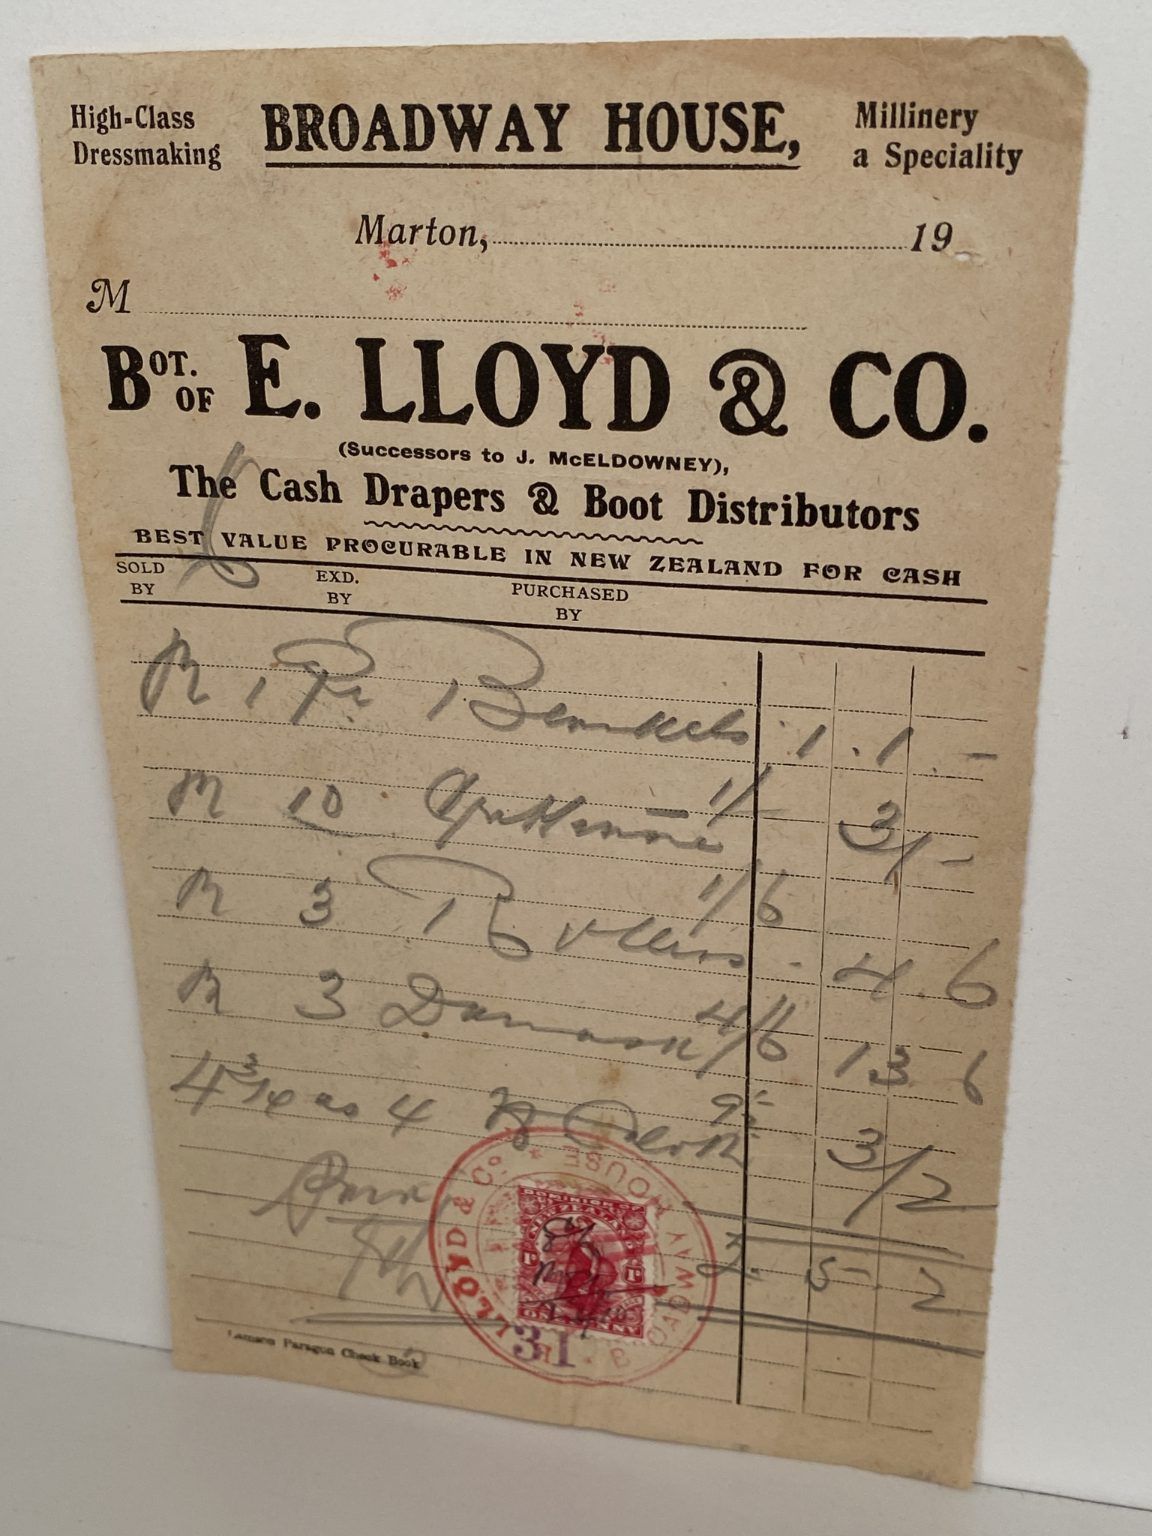 High-Class Dressmaking
BROADWAY HOUSE,
Millinery a Speciality
Marton, 19
M
BOT. OF E. LLOYD & CO.
(Successors to J. McELDOWNEY),
The Cash Drapers & Boot Distributors
BEST VALUE PROCURABLE IN NEW ZEALAND FOR CASH
SOLD BY EXD. BY PURCHASED BY
1 Pr Blankets 1 . 1 . -
10 1/- 3/-
3 1/6 4 . 6
3 Damask 4/6 13 6
4 3/4 as 4 Cloth 9½ 3/2
2 . 5 . 2
LLOYD & CO. * BROADWAY HOUSE
DOMINION OF NEW ZEALAND
1d 1d
ONE PENNY
31
Lamson Paragon Check Book